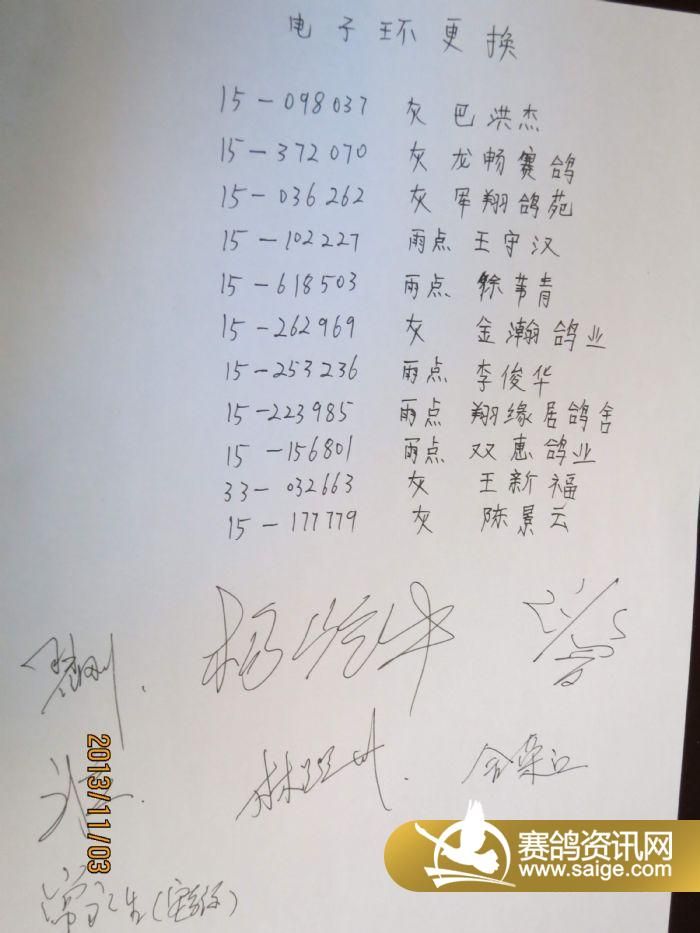 电子环更换
15-098037 灰 巴洪杰
15-372070 灰 龙畅赛鸽
15-036262 灰 军翔鸽苑
15-102227 雨点 王守汉
15-618503 雨点 徐苇青
15-262969 灰 金瀚鸽业
15-253236 雨点 李俊华
15-223985 雨点 翔缘居鸽舍
15-156801 雨点 双惠鸽业
33-032663 灰 王新福
15-177779 灰 陈景云
2013/11/03
赛鸽资讯网
www.saige.com